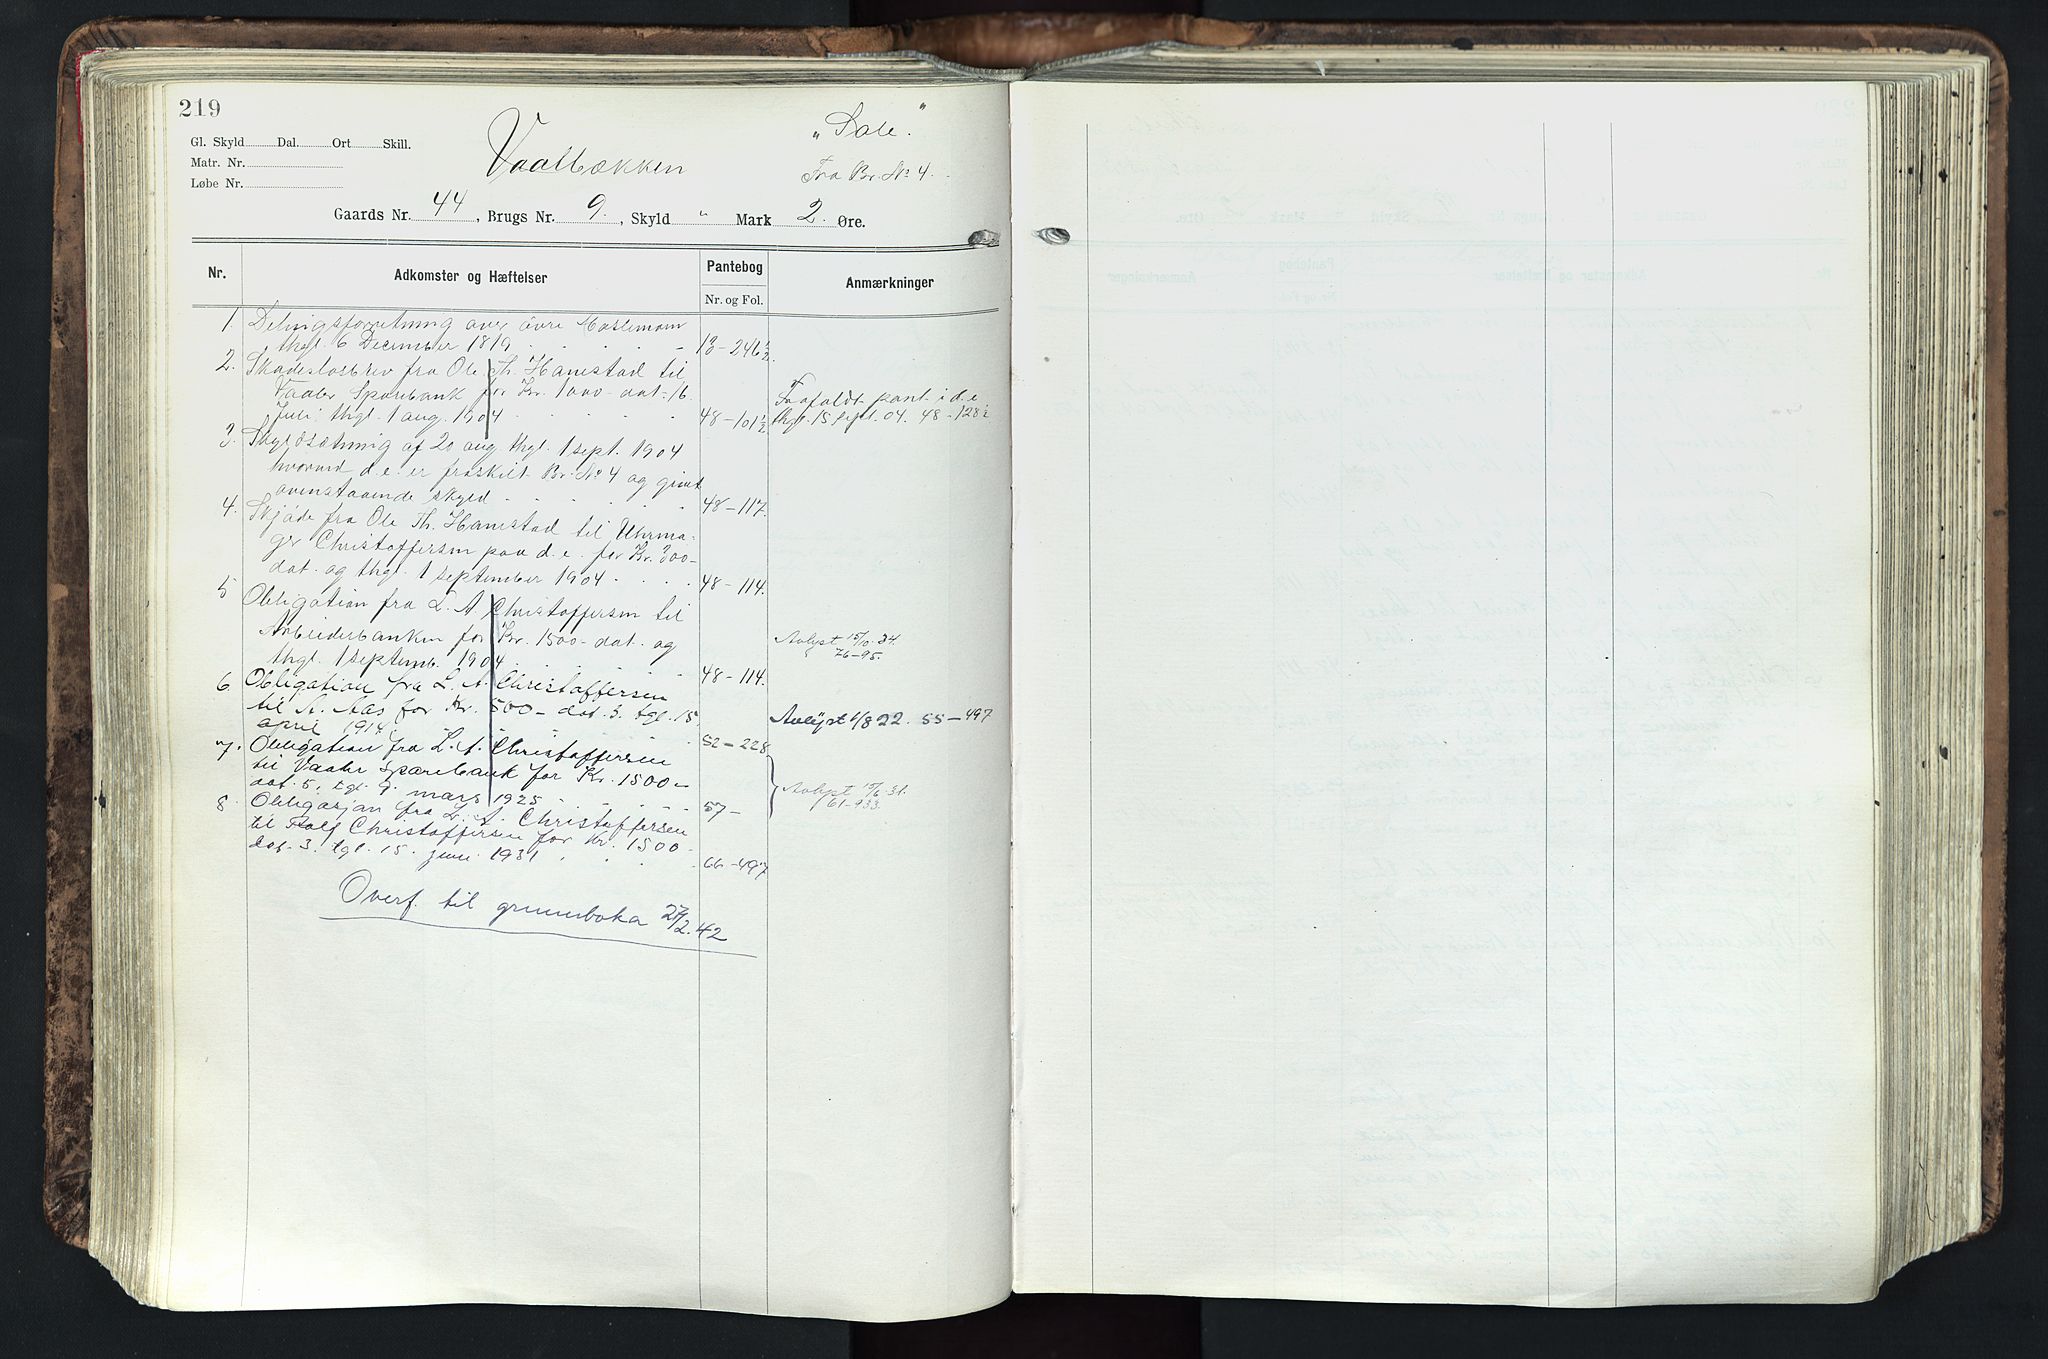 219
Gl. Skyld Dal. Ort Skill.
Matr. Nr.
Løbe Nr.
Vaalbækken
"Sole".
Fra Br. No 4.
Gaards Nr. 44, Brugs Nr. 9., Skyld " Mark 2. Øre.
Nr. Adkomster og Hæftelser Pantebog Anmærkninger
Nr. og Fol.
1. Delingsforretning over övre
thgl. 6 December 1819 13-246½.
2. Skadesløsbrev fra Ole Th. Hanestad til
Vaaler Sparebank for Kr. 1000 dat. 16. Frafaldt pant i d.e.
Juli: thgl. 1 aug. 1904 48-101½ thgl. 15 sept. 04. 48-128½
3. Skyldsætning af 20 aug. thgl. 1 sept. 1904
hvorved d.e. er fraskilt Br. No 4 og givet
ovenstaaende skyld 48-117.
4. Skjøde fra Ole Th. Hanestad til Uhrma-
ger Christoffersen paa d.e. for Kr. 300-
dat. og thgl. 1 september 1904 48-114.
5 Obligation fra L. A. Christoffersen til
Arbeiderbanken for Kr. 1500- dat. og Avlyst 15/10.24.
thgl. 1 septemb. 1904 48-114. 76-95.
6. Obligation fra L. A. Christoffersen
til A. Aas for Kr. 500- dat. 3. tgl. 15 Avlyst 1/8 22. 55-497
april 1914. 52-228
7. Obligation fra L. A. Christoffersen
til Vaaler Sparebank for Kr. 1500- Avlyst 15/6.31.
dat. 5. tgl. 9. mars 1925 57- 61-933.
8. Obligasjon fra L. A. Christoffersen
til Rolf Christoffersen for Kr. 1500-
dat. 3. tgl. 15. juni 1931 66-497
Overf. til grunnboka 27/2.42